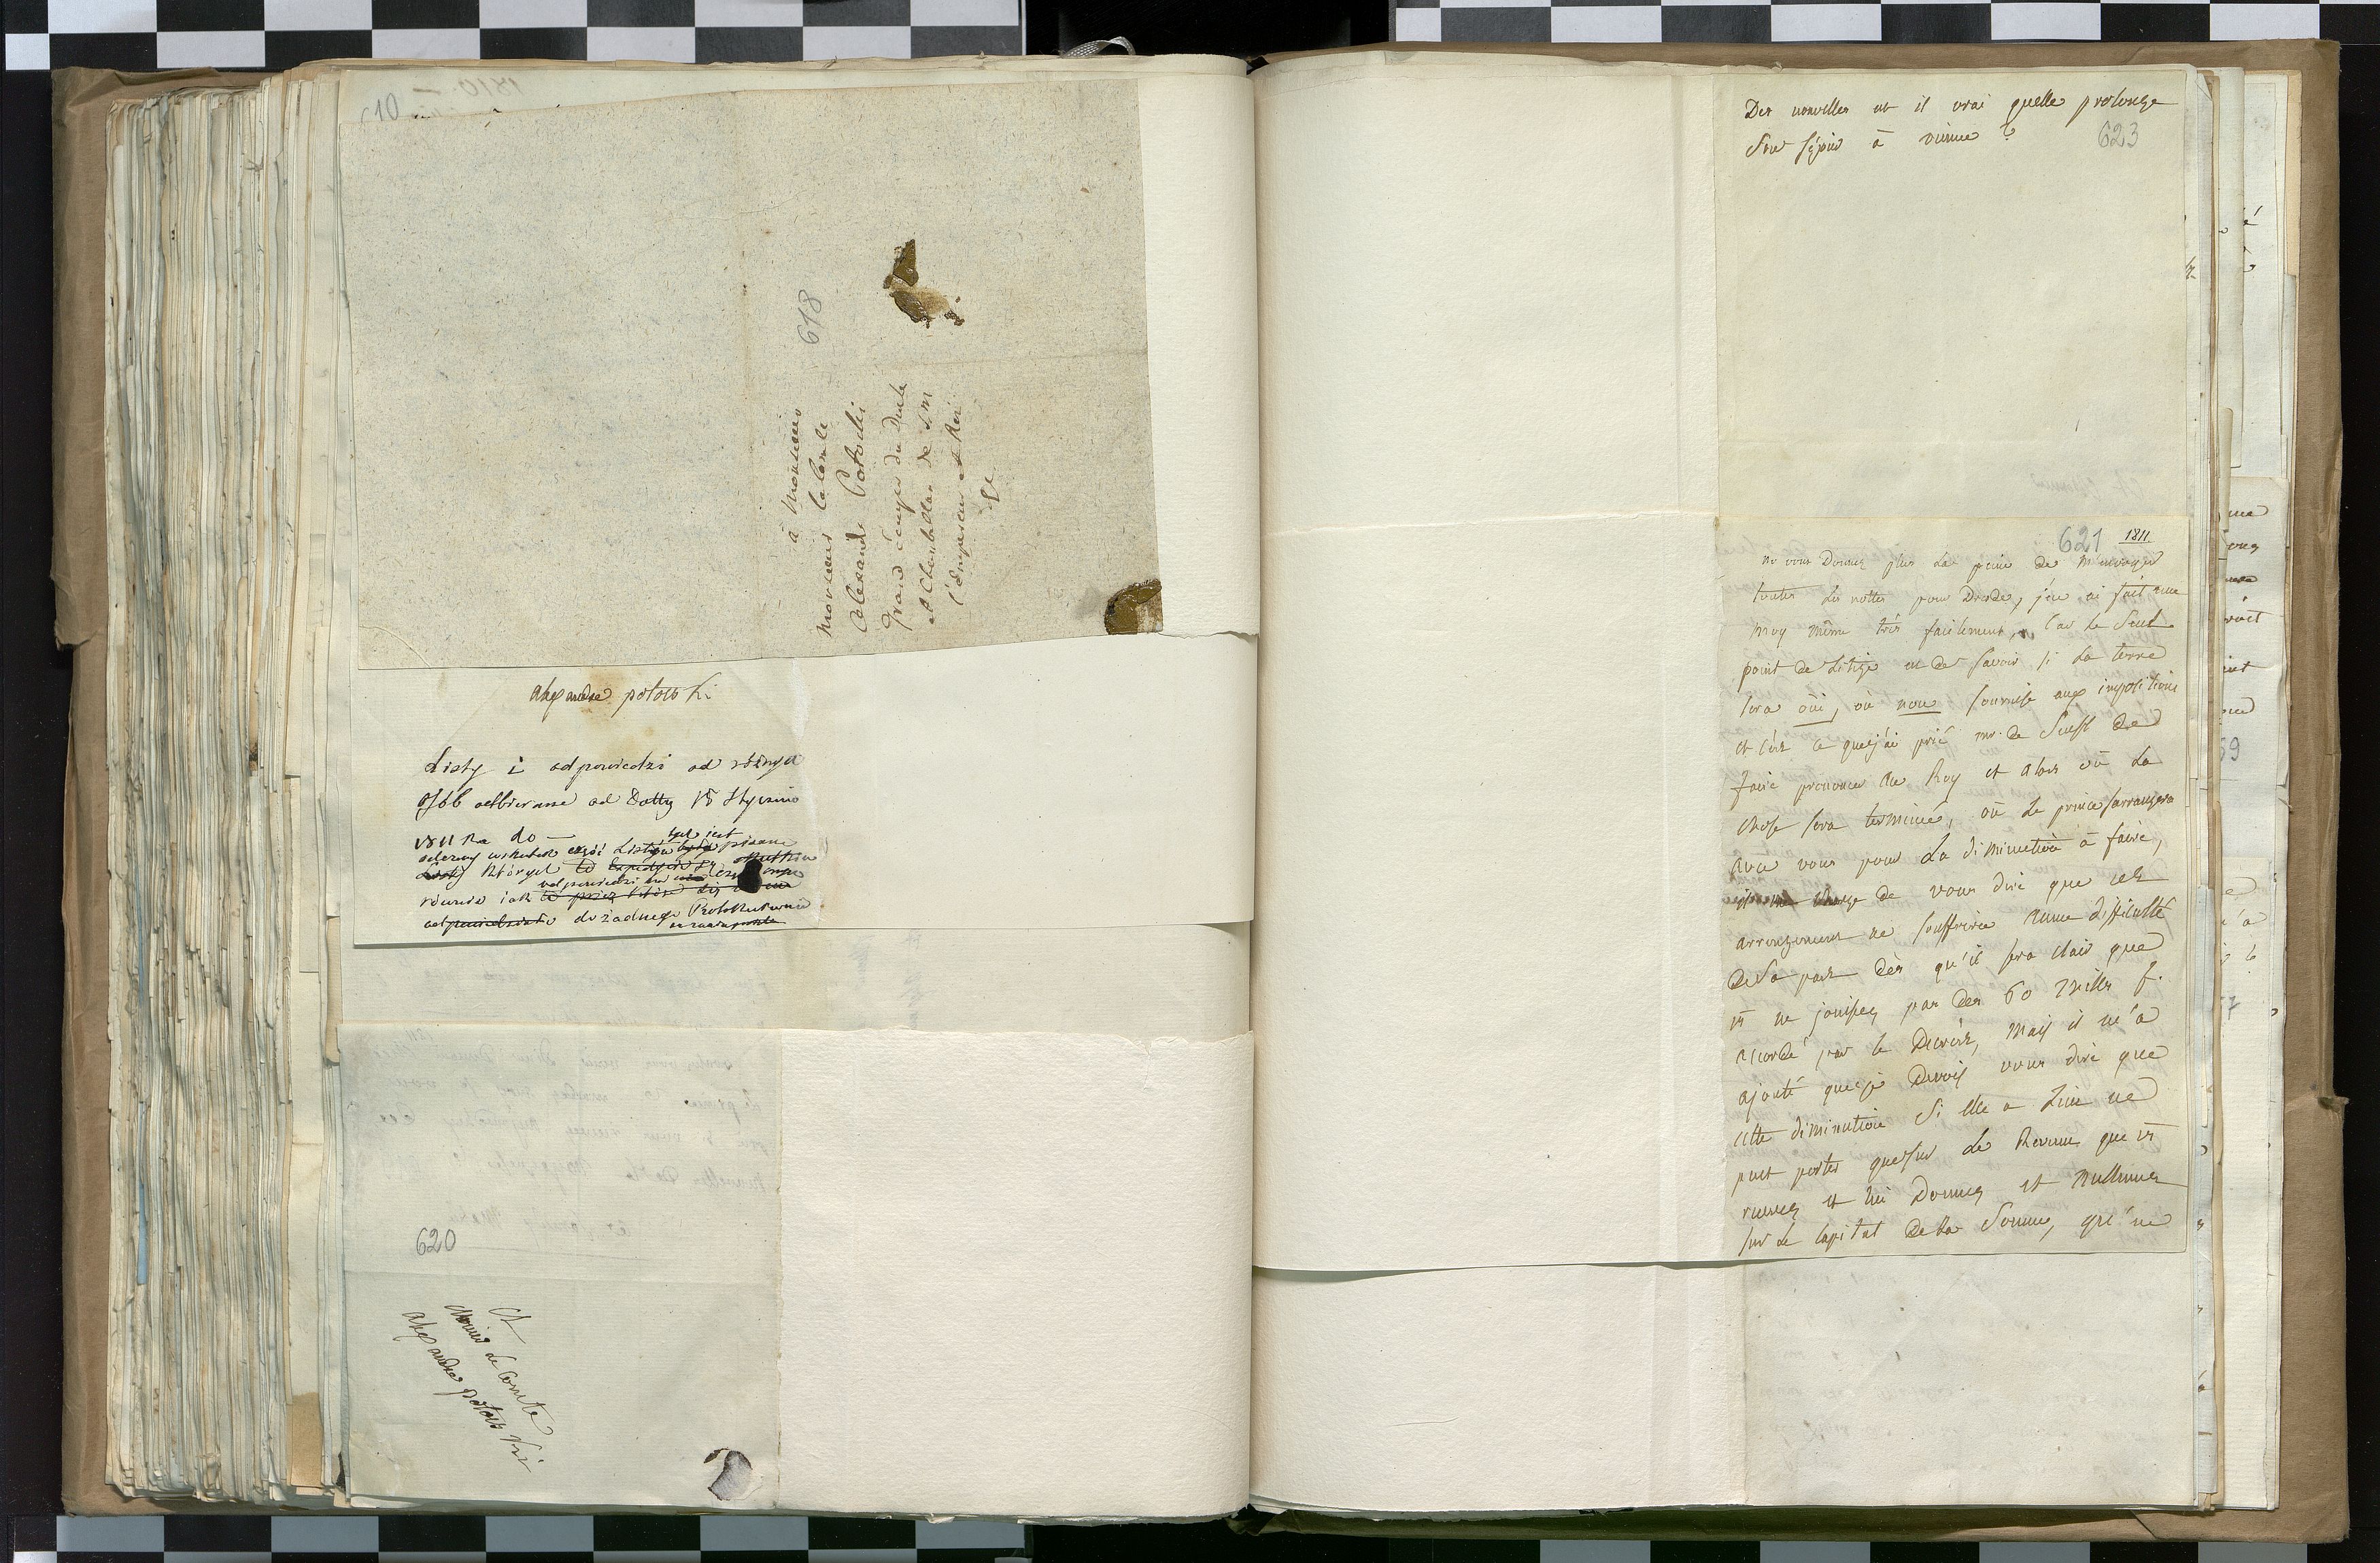 à Monsieur
Monsieur le Comte
Alexandre Potocki
grand écuyer du Duché
et Chambellan de S. M
l'Empereur et Roi
618
alexandre potocki
Listy i odpowiedzi od różnych
osób odbierane od Datty 15 Stycznia
1811 Ra do —
620
A
Monsieur le Comte
alexandre potocki
Des nouvelles est il vrai quelle prolonge
Son séjour à vienne ?
623
621 1811.
ne vous Donnez plus La peine de m'envoyer
toutes les nottes pour Dresde, j'en ai fait une
moy même très facilement, car Le Seul
point de Litige est de Savoir si La terre
sera oüi, où non soumise aux impositions
et c'est ce que j'ai prié mr. de Senft de
faire prononcer au Roy et alors où La
chose sera terminée, où Le prince s'arrangera
avec vous pour La diminution à faire,
il me charge de vous dire que cet
arrangement ne souffrira aucune difficulté
De Sa part Dès qu'il sera clair que
vs ne jouissez pas Des 60 mille f.
accordé par le Decrèt, mais il m'a
ajouté que je Devois vous dire que
cette diminution Si elle a Lieu ne
peut porter que sur Le Revenu que vs
et lui Donnez et nullement
sur Le Capital De La Somme, qui ne